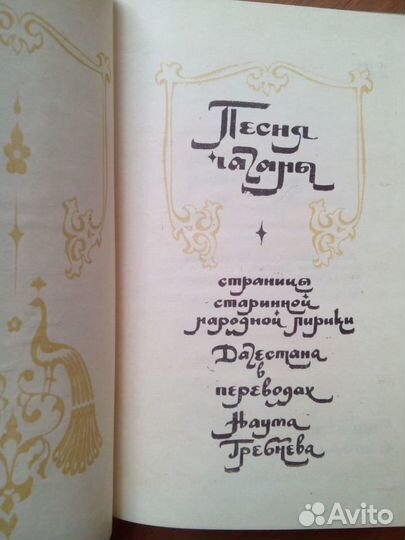 Песня
чаганы
страницы
старинной
народной лирики
Дагестана
в
переводах
Наума
Гребнева
Avito